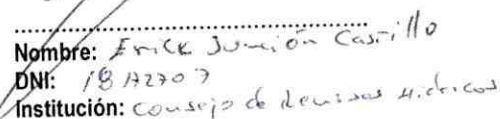 Nombre: Erick Junción Castillo
DNI: 18172707
Institución: Consejo de Recursos Hídricos